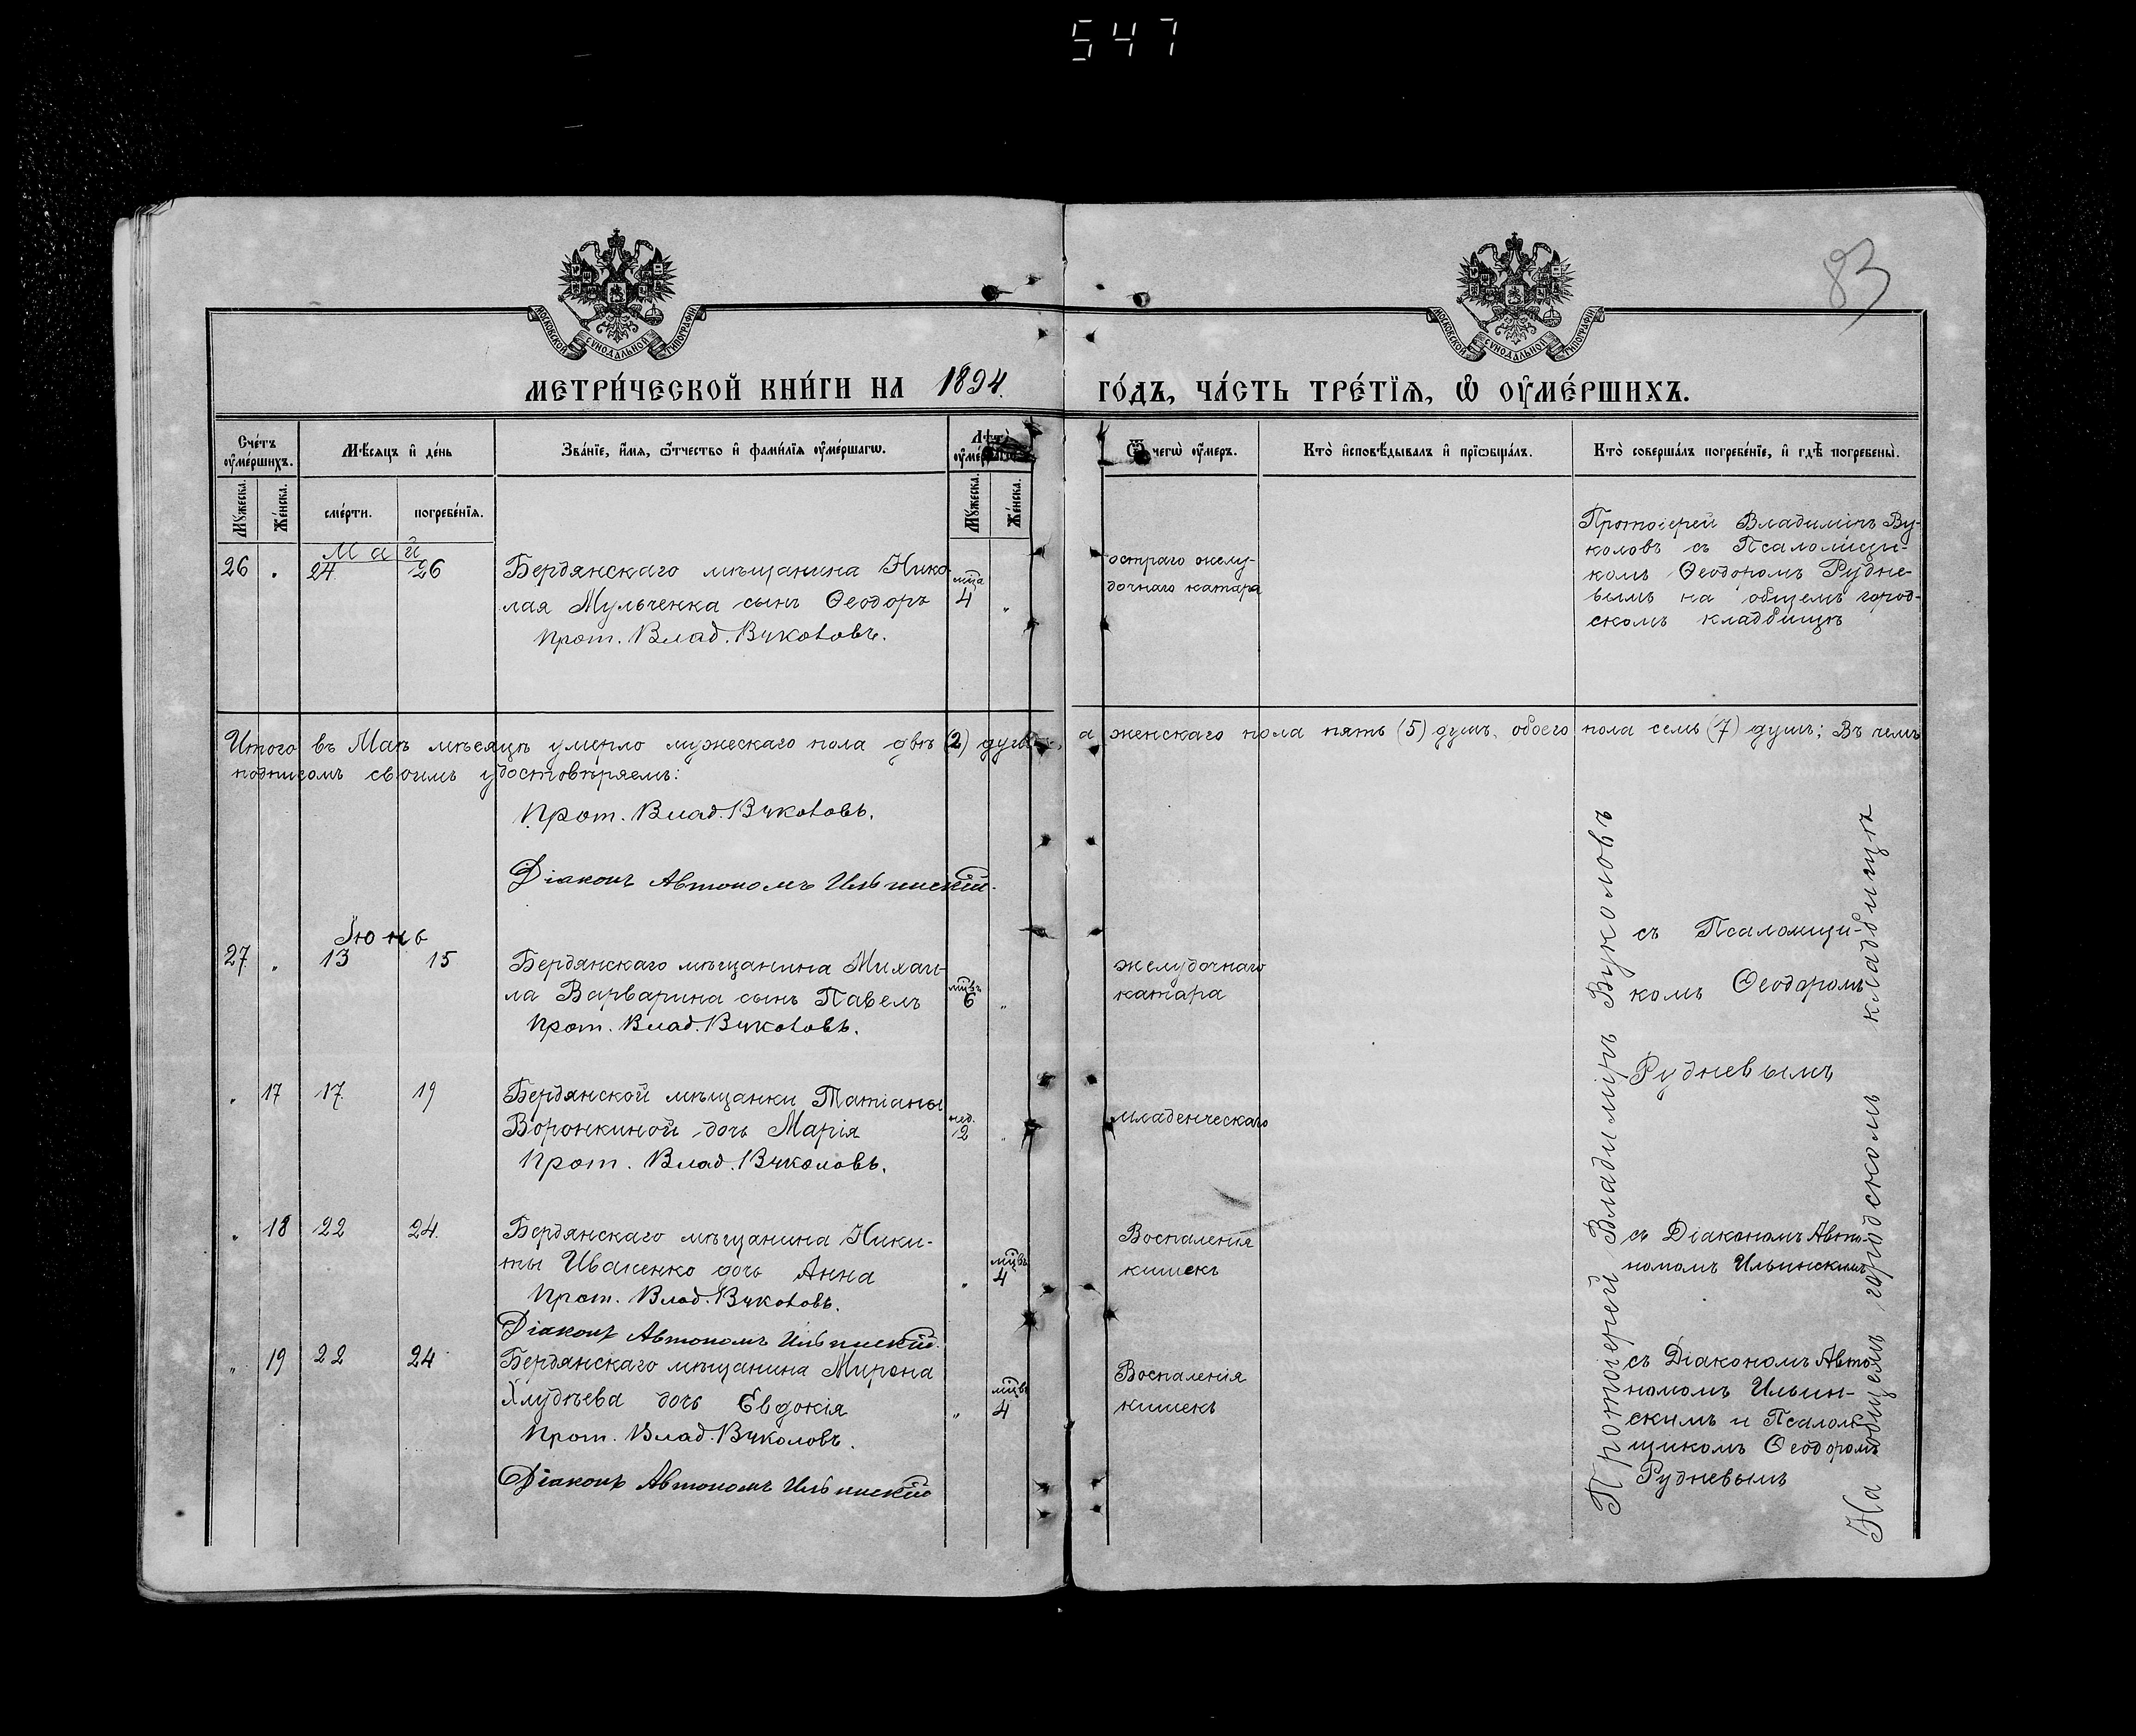 547
83
МОСКОВСКОЙ СѴНОДАЛЬНОЙ ТИПОГРАФІИ
МОСКОВСКОЙ СѴНОДАЛЬНОЙ ТИПОГРАФІИ
МЕТРИ́ЧЕСКОЙ КНИ́ГИ НА 1894. ГО́ДЪ, ЧА́СТЬ ТРЕ́ТЇѦ, Ѡ҆ ОУ҆МЕ́РШИХЪ.
Сче́тъ оу҆ме́ршихъ.
Мꙋ́жеска.
Же́нска.
Мѣ́сѧцъ и҆ де́нь
сме́рти.
погребе́нїѧ.
Зва́нїе, и҆́мѧ, ѻ҆́тчество и҆ фами́лїѧ оу҆ме́ршагѡ.
Лѣ́та оу҆ме́ршагѡ
Мꙋ́жеска.
Же́нска.
Ѿ чегѡ̀ оу҆́меръ.
Кто̀ и҆сповѣ́дывалъ и҆ прїѡбща́лъ.
Кто̀ соверша́лъ погребе́нїе, и҆ гдѣ̀ погребены̀.
Май
26 . 24 26
Бердянскаго мѣщанина Нико-
лая Мульченка сынъ Ѳеодоръ
Прот. Влад. Вуколовъ.
мца
4 „
остраго желу-
дочнаго катара
Протоіерей Владиміръ Ву-
коловъ съ Псаломщи-
комъ Ѳеодоромъ Рудне-
вымъ на общемъ город-
скомъ кладбищѣ
Итого въ Маѣ мѣсяцѣ умерло мужескаго пола двѣ (2) души, а женскаго пола пять (5) душъ, обоего пола семь (7) душъ; Въ чемъ
подписомъ своимъ удостовѣряемъ:
Прот. Влад. Вуколовъ.
Діаконъ Автономъ Ильинскій.
Іюнь
27 „ 13 15
Бердянскаго мѣщанина Михаи-
ла Варварина сынъ Павелъ
Прот. Влад. Вуколовъ.
мцвъ
6 „
желудочнаго
катара
съ Псаломщи-
комъ Ѳеодоромъ
Рудневымъ
„ 17 17 19
Бердянской мѣщанки Татіаны
Воронкиной дочь Марія
Прот. Влад. Вуколовъ.
нед.
2 „
младенческаго
„ 18 22 24.
Бердянскаго мѣщанина Ники-
ты Иваненко дочь Анна
Прот. Влад. Вуколовъ.
Діаконъ Автономъ Ильинскій.
мцвъ
„ 4
Воспаленія
кишекъ
съ Діакономъ Авто-
номомъ Ильинскимъ
„ 19 22 24
Бердянскаго мѣщанина Мирона
Хлудѣева дочь Евдокія
Прот. Влад. Вуколовъ.
Діаконъ Автономъ Ильинскій
мцвъ
„ 4
Воспаленія
кишекъ
съ Діакономъ Авто-
номомъ Ильин-
скимъ и Псалом-
щикомъ Ѳеодоромъ
Рудневымъ
Протоіерей Владиміръ Вуколовъ
На общемъ городскомъ кладбищѣ